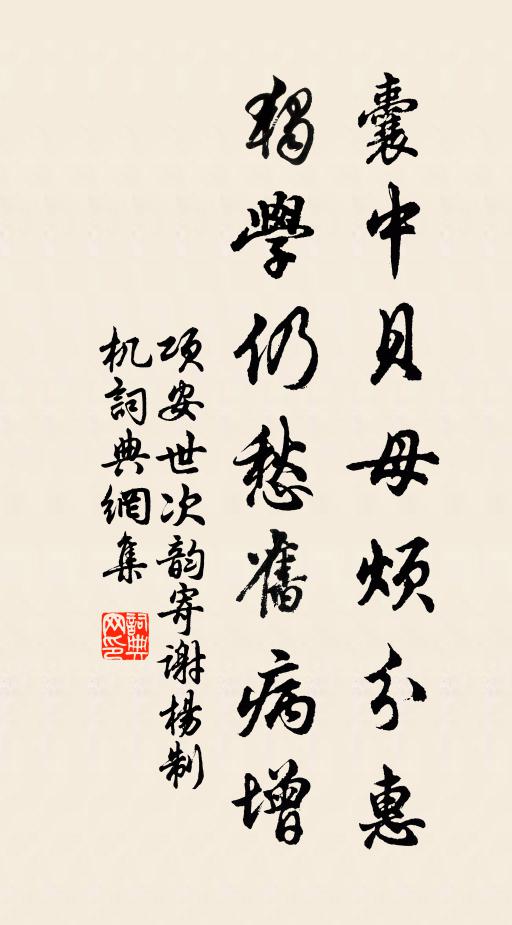 囊中貝母煩分惠
獨學仍愁舊病增
項安世次韵寄谢楊制
机詞典網集
詞典网印